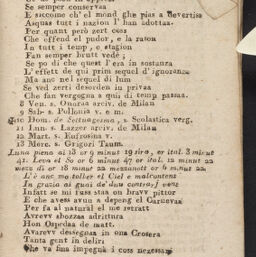 Se semper conservaa
E siccome ch'el mond ghe pias a devertiss
Asquas tutt i nazion l'han adottaa.
Per quant però zert coss
Che offend el pudor, e la rason
In tutt i temp, e stagion
Fan semper brutt vedè;
Se po dì che quest l'era in sostanza
L'effett de qui prim sequel d'ignoranza
Ma anc nel sequel di lum
Se ved zerti desorden in privaa
Che fan vergogna a qui di temp passaa.
8 Ven. s. Onoraa arciv. de Milan
9 Sab. s. Pollonia v. e m.
10 Dom. de Settuagesma, s. Scolastica verg.
11 Lun. s. Lazzer arciv. de Milan
12 Mart. s. Eufrosina v.
13 Merc. s. Grigori Taum.
Luna piena al 13 or 9 minut 19 sira, or ital. 3 minut
41. Leva el So or 6 minut 47 or ital. 12 minut 22
mezz dì or 18 minut 22 mezzanott or 6 minut 22
L'è anc mo toller el Ciel e malcontent
In grazia de quai dè dun contra, j vent
Infatt se mi fuss staa on bravv pittor
E che avess avuu a depeng el Carnevaa
Per fa al natural el me retratt
Avrevv sbozzaa adrittura
Hon Ospedaa de matt.
Avarevv dessegnaa in ona Crosera
Tanta gent in deliri
Che va fina impegnà i coss necessari